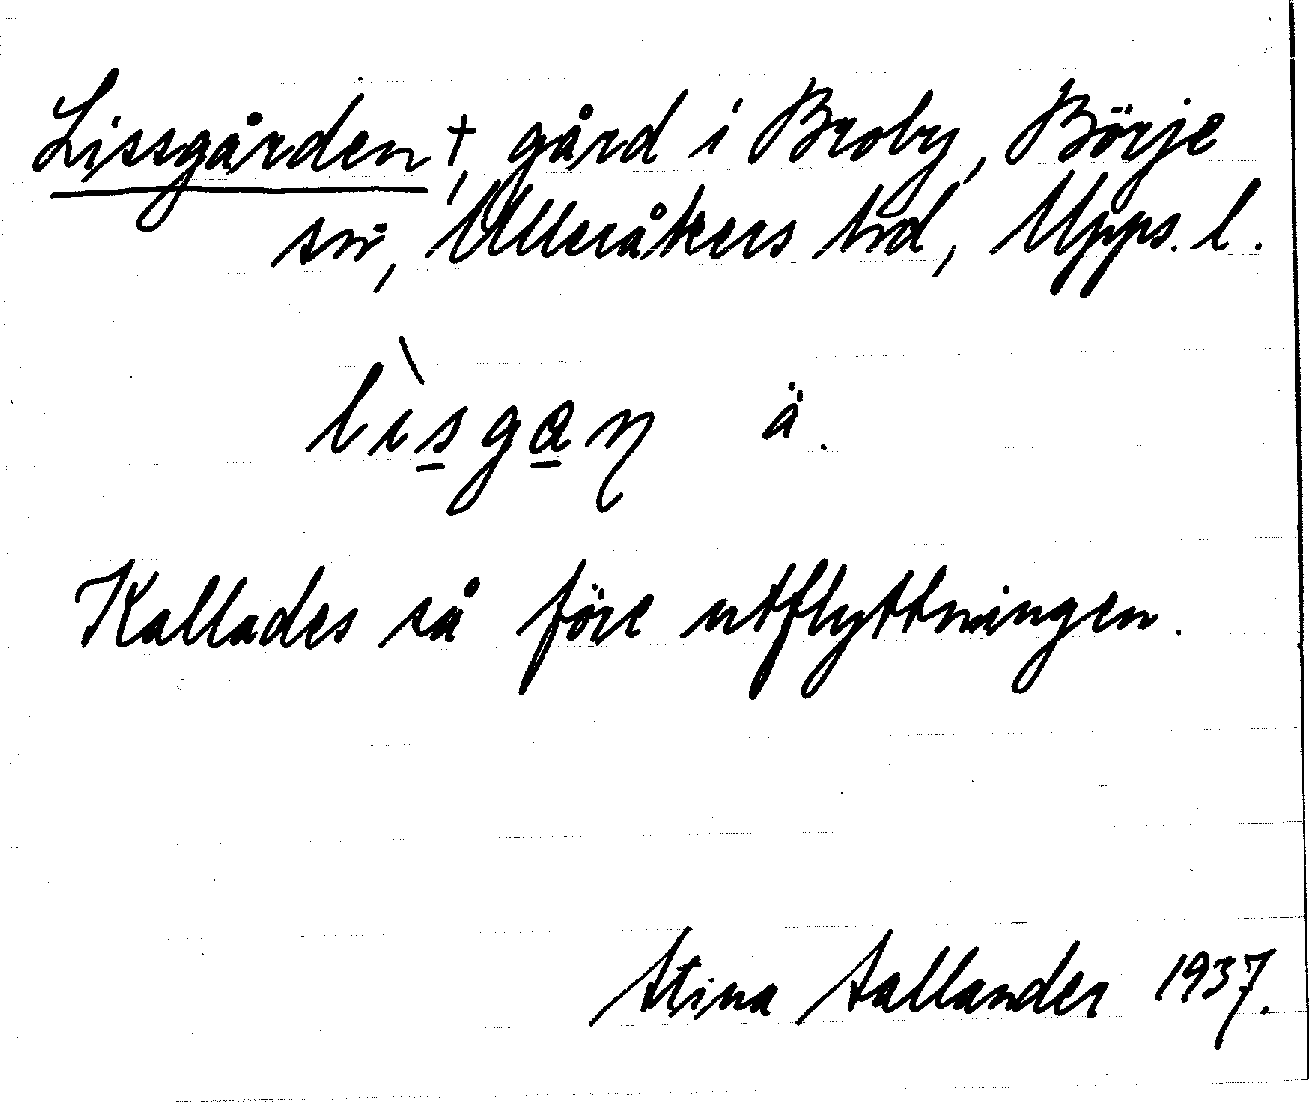 Lissgården †, gård i Broby, Börje
sn, Ulleråkers hd, Upps. l.
lìsgaɳ ä.
Kallades så före utflyttningen.
Stina Sallander 1937.